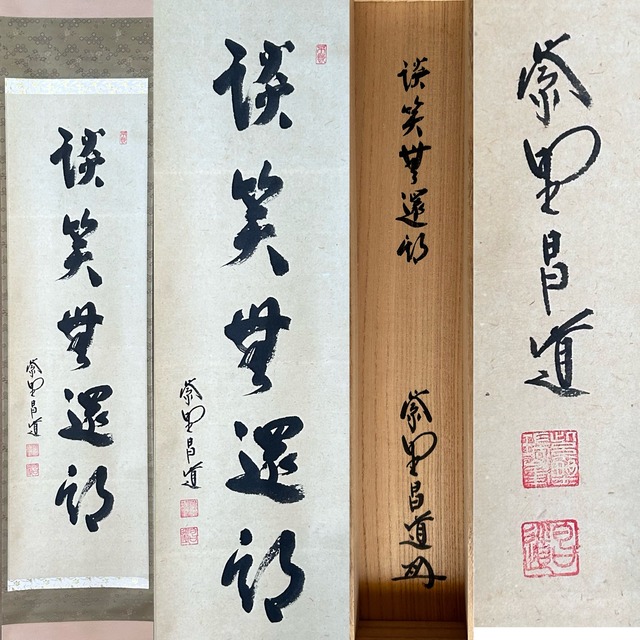 談笑無還期
紫野昌道
談笑無還期
紫野昌道
談笑無還期
紫野昌道
紫野昌道